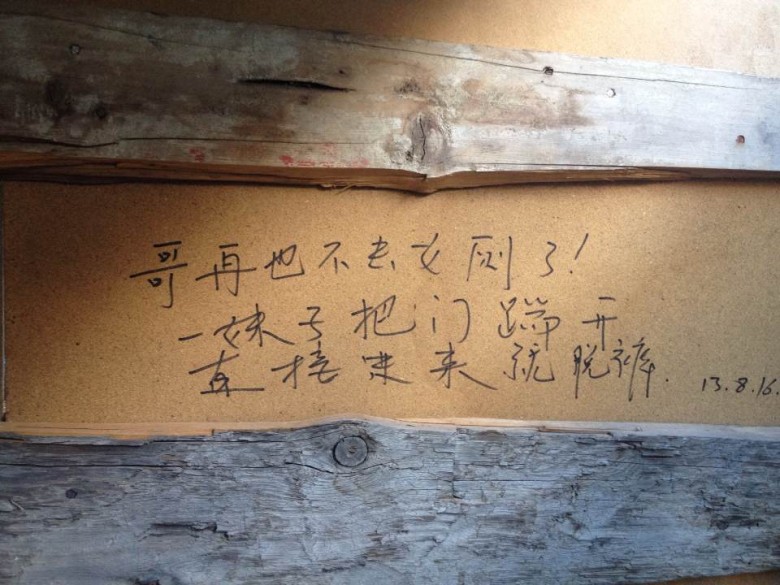 哥再也不去女厕了!
一妹子把门蹦开
直接进来就脱裤.
13.8.16.